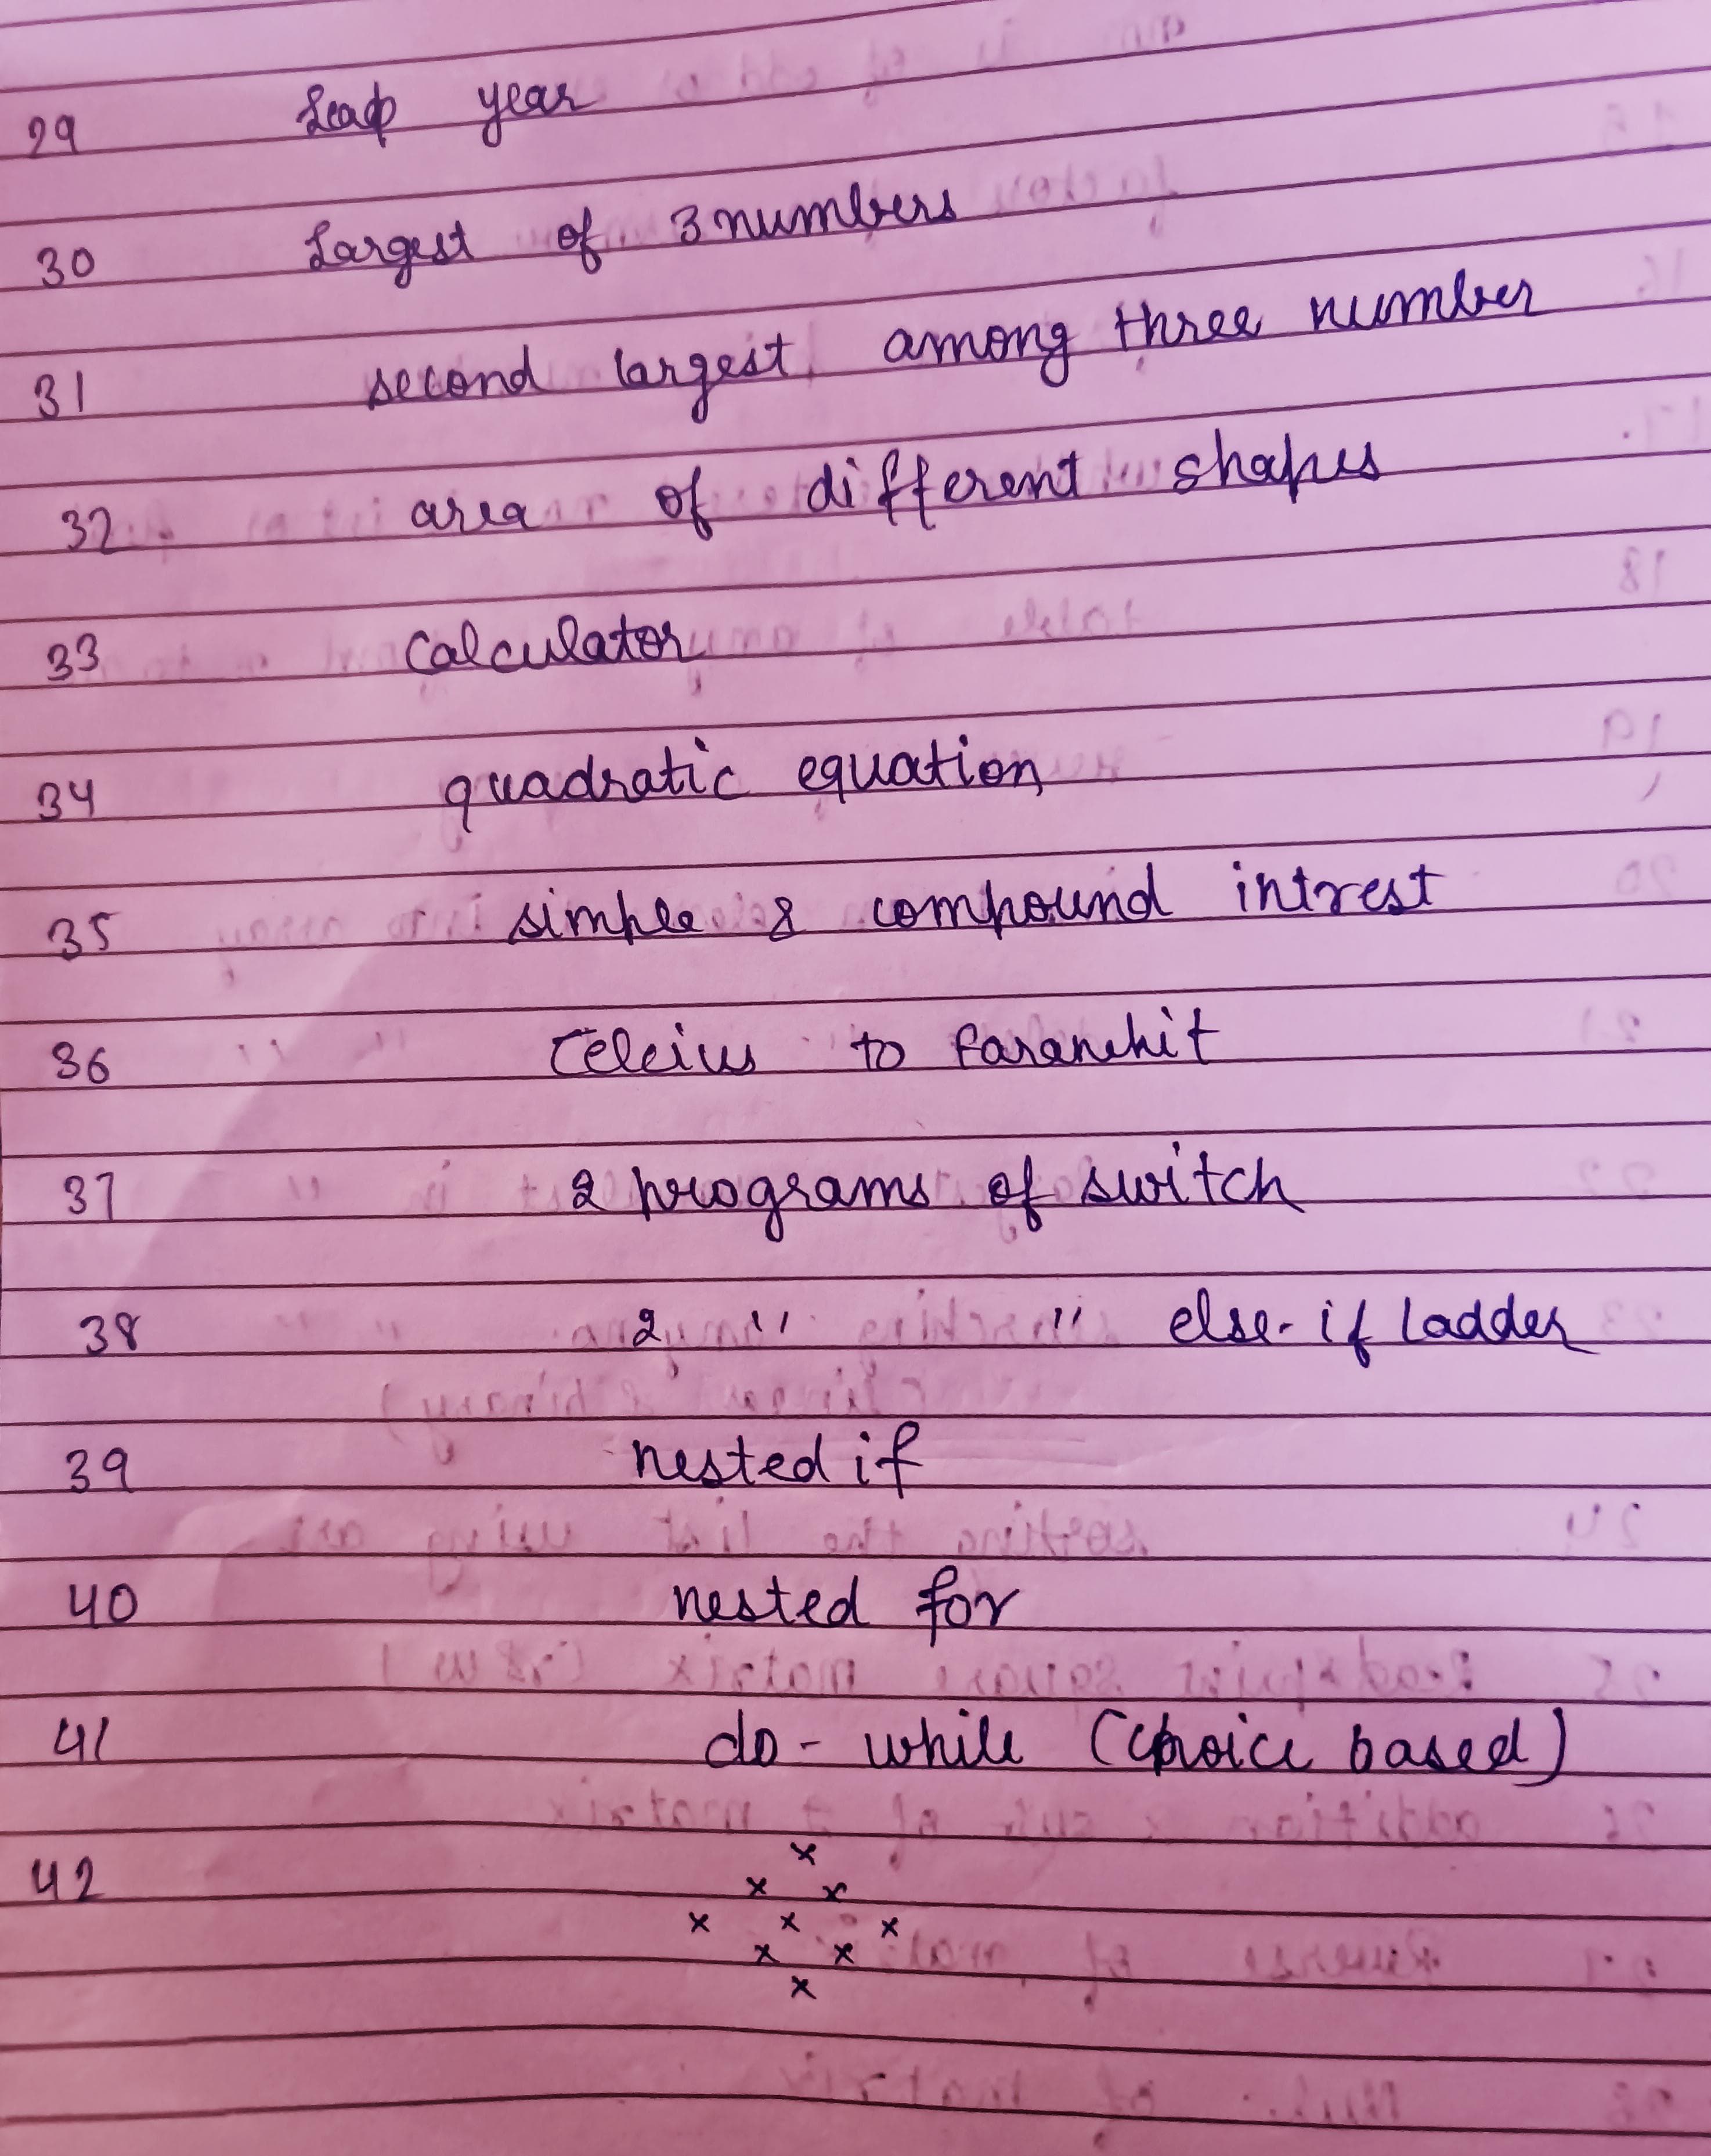 29 Leap year
30 Largest of 3 numbers
31 second largest among three number
32 area of different shapes
33 calculator
34 quadratic equation
35 simple & compound intrest
36 Celcius to faranehit
37 2 programs of switch
38 2 " " else-if ladder
39 nested if
40 nested for
41 do - while (choice based)
42 x
x x
x x x
x x
x